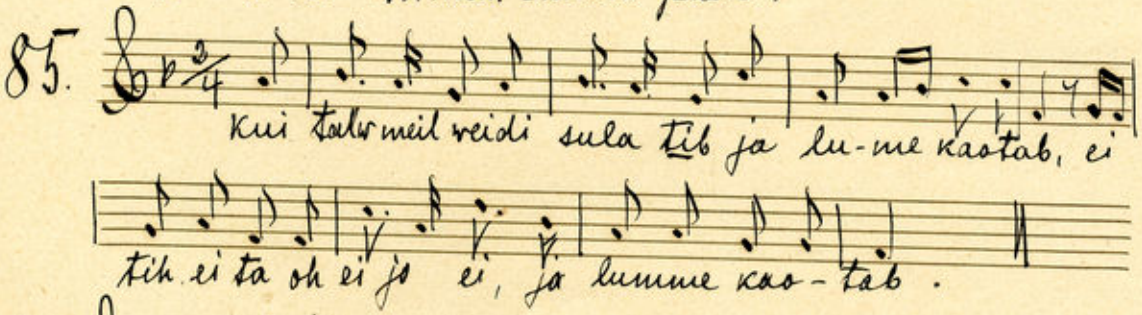 85. 2/4
Kui talw meil weidi sula tib ja lu-me kaotab, ei
tih ei ta oh ei jo ei, ja lumme kao-tab.